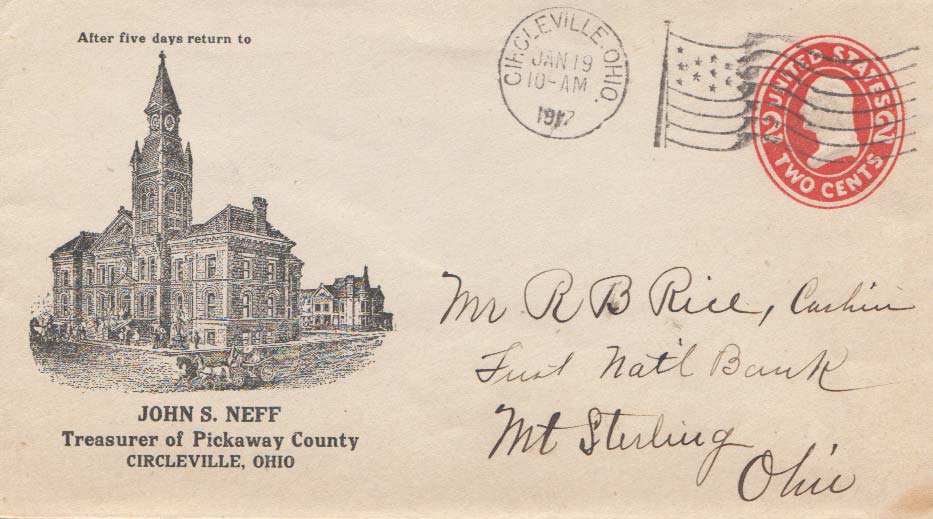 After five days return to
CIRCLEVILLE, OHIO.
JAN 19
10-AM
1917
UNITED STATES
2 2
TWO CENTS
JOHN S. NEFF
Treasurer of Pickaway County
CIRCLEVILLE, OHIO
Mr R B Rice, Cashier
First Nat'l Bank
Mt Sterling
Ohio